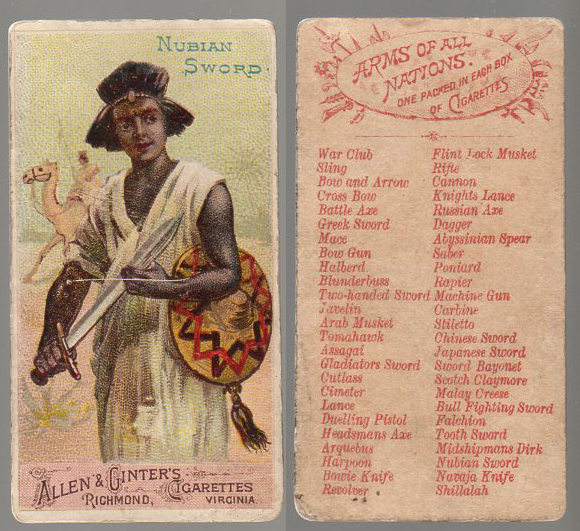 NUBIAN
SWORD.
ALLEN & GINTER'S
CIGARETTES
RICHMOND, VIRGINIA.
ARMS OF ALL
NATIONS.
ONE PACKED IN EACH BOX
OF CIGARETTES
War Club
Sling
Bow and Arrow
Cross Bow
Battle Axe
Greek Sword
Mace
Bow Gun
Halberd
Blunderbuss
Two-handed Sword
Javelin
Arab Musket
Tomahawk
Assagai
Gladiators Sword
Cutlass
Cimeter
Lance
Duelling Pistol
Headsmans Axe
Arquebus
Harpoon
Bowie Knife
Revolver
Flint Lock Musket
Rifle
Cannon
Knights Lance
Russian Axe
Dagger
Abyssinian Spear
Saber
Poniard
Rapier
Machine Gun
Carbine
Stiletto
Chinese Sword
Japanese Sword
Sword Bayonet
Scotch Claymore
Malay Creese
Bull Fighting Sword
Falchion
Tooth Sword
Midshipmans Dirk
Nubian Sword
Navaja Knife
Shillalah